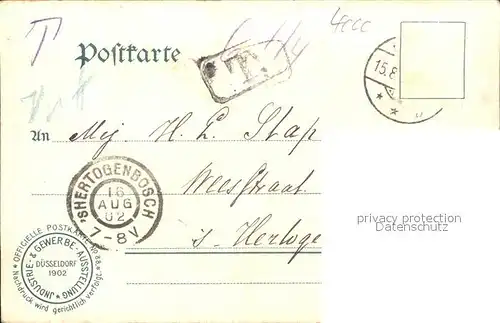 T
Postkarte
T.
15.8
An Mej. H. L. Stap
'SHERTOGENBOSCH
16
AUG
02
7-8V
s. Hertoge
privacy protection
Datenschutz
* OFFICIELLE POSTKARTE No 88. *
JNDUSTRIE- & GEWERBE-AUSSTELLUNG
DÜSSELDORF
1902
Nachdruck wird gerichtlich verfolgt.